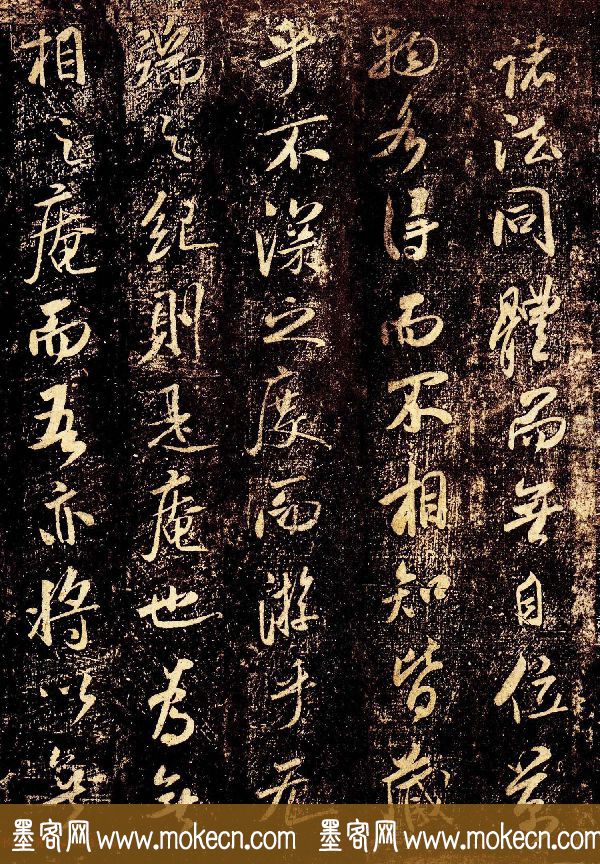 諸法同體而無自位萬
物各得而不相知皆藏
乎不深之度而游乎無
端之紀則是庵也為無
相之庵而吾亦將以無
墨客网 www.mokecn.com 墨客网 www.mokecn.com